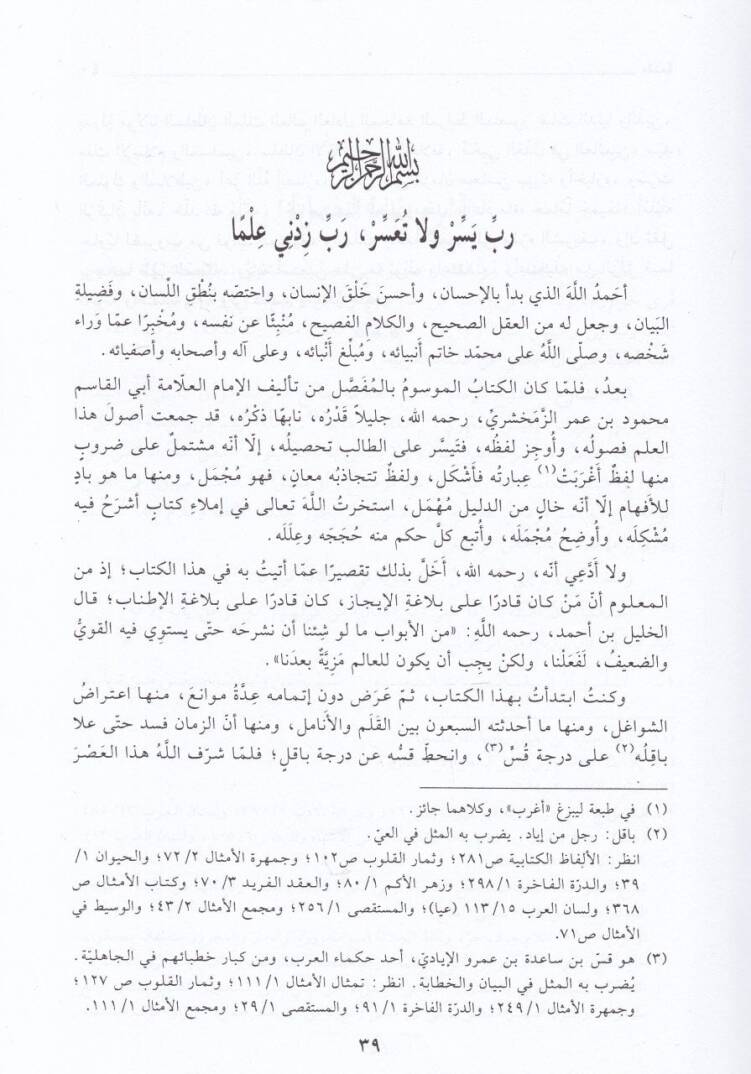 بسم الله الرحمن الرحيم
ربِّ يَسِّرْ ولا تُعَسِّرْ، رَبِّ زِدْنِي عِلْمًا
أحَمدُ اللَّهَ الذي بدأ بالإحسان، وأحسنَ خَلْقَ الإنسان، واختصّه بنُطْقِ اللّسان، وفَضِيلةِ
البَيان، وجعل له من العقل الصحيح، والكلامِ الفصيح، مُنْبِئًا عن نفسه، ومُخْبِرًا عمّا وراء
شَخْصه، وصلّى اللَّهُ على محمّد خاتم أنبيائه، ومُبلِّغ أنْبائه، وعلى آله وأصحابه وأصفيائه.
بعدُ، فلمّا كان الكتابُ الموسومُ بالمُفَصَّل من تأليف الإمام العلّامة أبي القاسم
محمود بن عمر الزَّمَخشريّ، رحمه الله، جليلاً قَدْرُه، نابهًا ذِكْرُه، قد جمعت أصولَ هذا
العلم فصولُه، وأُوجِز لفظُه، فتَيسَّر على الطالب تحصيلُه، إلّا أنّه مشتملٌ على ضروبٍ
منها لفظٌ أَغْرَبَتْ(١) عِبارتُه فأشْكَل، ولفظٌ تتجاذبُه معانٍ، فهو مُجْمَل، ومنها ما هو بادٍ
للأفهام إلّا أنّه خالٍ من الدليل مُهْمَل، استخرتُ اللَّهَ تعالى في إملاءِ كتابٍ أشرَحُ فيه
مُشْكِلَه، وأُوضِحُ مُجْمَلَه، وأُتبع كلَّ حكم منه حُجَجَه وعِلَلَه.
ولا أدَّعِي أنّه، رحمه الله، أخَلَّ بذلك تقصيرًا عمّا أتيتُ به في هذا الكتاب؛ إذ من
المعلوم أنّ مَنْ كان قادرًا على بلاغةِ الإيجاز، كان قادرًا على بلاغةِ الإطناب؛ قال
الخليل بن أحمد، رحمه اللَّهِ: «من الأبواب ما لو شِئنا أن نشرحَه حتّى يستوِي فيه القويُّ
والضعيفُ، لَفَعَلْنا، ولكنْ يجِب أن يكون للعالم مَزِيَّةٌ بعدَنا».
وكنتُ ابتدأتُ بهذا الكتاب، ثمّ عَرَض دون إتمامه عِدَّةُ موانعَ، منها اعتراضُ
الشواغل، ومنها ما أحدثته السبعون بين القَلَم والأنامل، ومنها أنّ الزمان فسد حتّى علا
باقِلُه(٢) على درجة قُسٍّ(٣)، وانحطّ قسُّه عن درجة باقل؛ فلمّا شرّف اللَّهُ هذا العَصْرَ
(١) في طبعة ليبزغ «أغرب»، وكلاهما جائز.
(٢) باقل: رجل من إياد. يضرب به المثل في العيّ.
انظر: الألفاظ الكتابية ص٢٨١؛ وثمار القلوب ص١٠٢؛ وجمهرة الأمثال ٧٢/٢؛ والحيوان ١/
٣٩؛ والدرّة الفاخرة ٢٩٨/١؛ وزهر الأكم ٨٠/١؛ والعقد الفريد ٧٠/٣؛ وكتاب الأمثال ص
٣٦٨؛ ولسان العرب ١١٣/١٥ (عيا)؛ والمستقصى ٢٥٦/١؛ ومجمع الأمثال ٤٣/٢؛ والوسيط في
الأمثال ص٧١.
(٣) هو قسّ بن ساعدة بن عمرو الإياديّ، أحد حكماء العرب، ومن كبار خطبائهم في الجاهليّة.
يُضرب به المثل في البيان والخطابة. انظر: تمثال الأمثال ١١١/١؛ وثمار القلوب ص ١٢٧؛
وجمهرة الأمثال ٢٤٩/١؛ والدرّة الفاخرة ٩١/١؛ والمستقصى ٢٩/١؛ ومجمع الأمثال ١١١/١.
٣٩